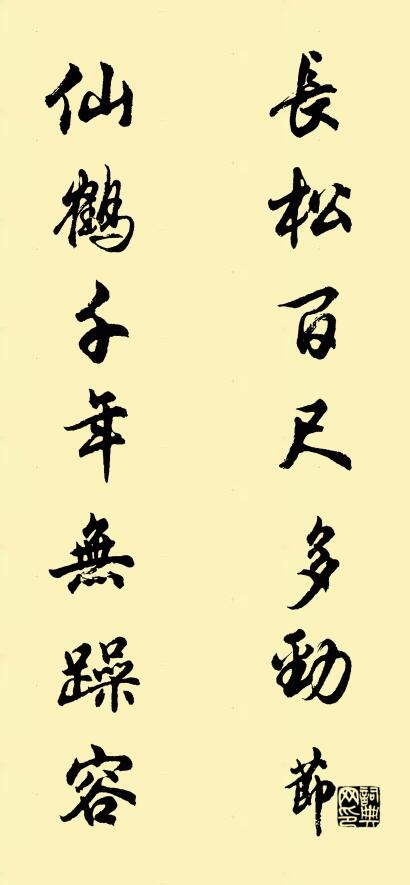 長松百尺多勁節
仙鶴千年無躁容
詞典网印